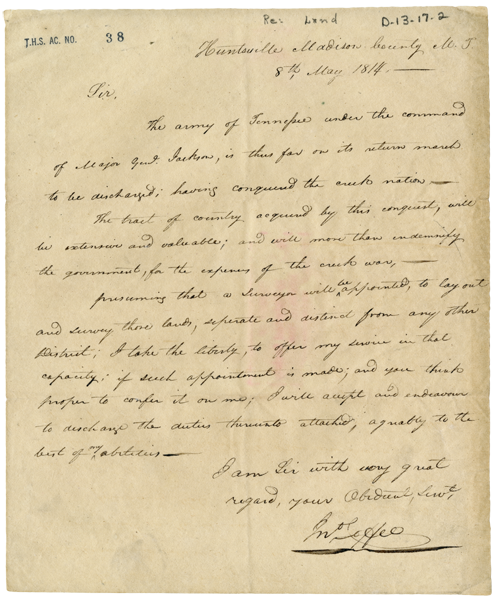 Re: Land
D-13-17-2
T.H.S. AC. NO. 38
Huntsville Madison County M. T.
8th, May 1814. —
Sir,
The army of Tennessee under the command
of Major Genl. Jackson, is thus far on its return march
to be discharged; having conquered the creek nation —
The tract of country acquired by this conquest, will
be extensive and valuable; and will more than indemnify
the government, for the expenses of the creek war, —
presuming that a Surveyor will be appointed, to lay out
and survey those lands, seperate and distinct from any other
District; I take the liberty, to offer my service in that
capacity; if such appointment is made; and you think
proper to confer it on me; I will accept and endeavour
to discharge the duties thereunto attached, agreeably to the
best of my abilities —
I am Sir with very great
regard, your Obedient, Servt,
Jno. Coffee